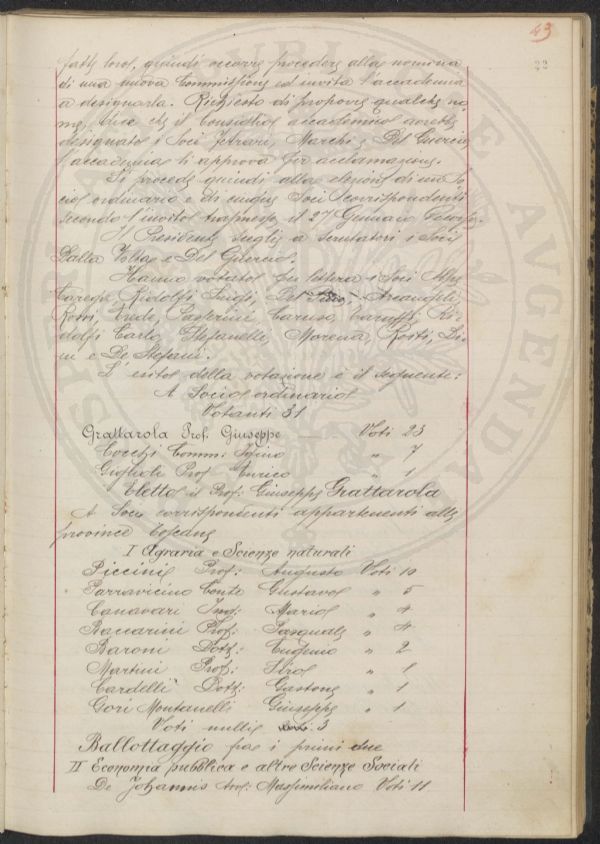 43
22
fatto loro, quindi occorre procedere alla nomina
di una nuova Commissione ed invita l'accademia
a designarla. Richiesto di proporre qualche no-
me, dice che il Consiglio accademico avrebbe
designato i Soci Ferrari, Marchi e Del Guercio
l'accademia li approva per acclamazione.
Si procede quindi alla elezione di un So-
cio ordinario e di Soci corrispondenti
secondo l'invito trasmesso il 27 Gennaio decorso.
Il Presidente sceglie a scrutatori i Soci
Dalla Volta e Del Guercio.
Hanno votato per lettera i Soci
Caregi, Ridolfi Luigi, Arcangeli,
Rossi, Caruso, Ri-
dolfi Carlo, Stefanelli, Morena, Rosti, Di-
ni e De Stefani.
L'esito della votazione è il seguente:
A Socio ordinario
Votanti 31
Grattarola Prof. Giuseppe Voti 23
Cocchi Comm: Igino " 7
Giglioli Prof Enrico " 1
Eletto il Prof: Giuseppe Grattarola
A Soci corrispondenti appartenenti alle
province toscane
I Agraria e Scienze naturali
Piccini Prof: Augusto Voti 10
Parravicino Conte Gustavo " 5
Canavari Ing: Mario " 4
Baccarini Prof: Pasquale " 4
Baroni Dott: Eugenio " 2
Martini Prof: Siro " 1
Cardelli Dott: Gastone " 1
Gori Montanelli Giuseppe " 1
Voti nulli 3
Ballottaggio fra i primi due
II Economia pubblica e altre Scienze Sociali
De Johannis Prof: Massimiliano Voti 11